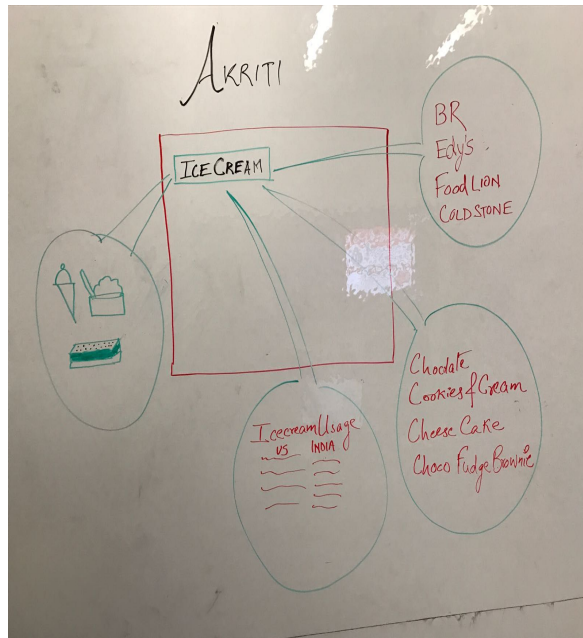 AKRITI
ICE CREAM
BR
Edy's
Food LION
COLDSTONE
Choclate
Cookies & Cream
Cheese Cake
Choco Fudge Brownie
Icecream Usage
US INDIA